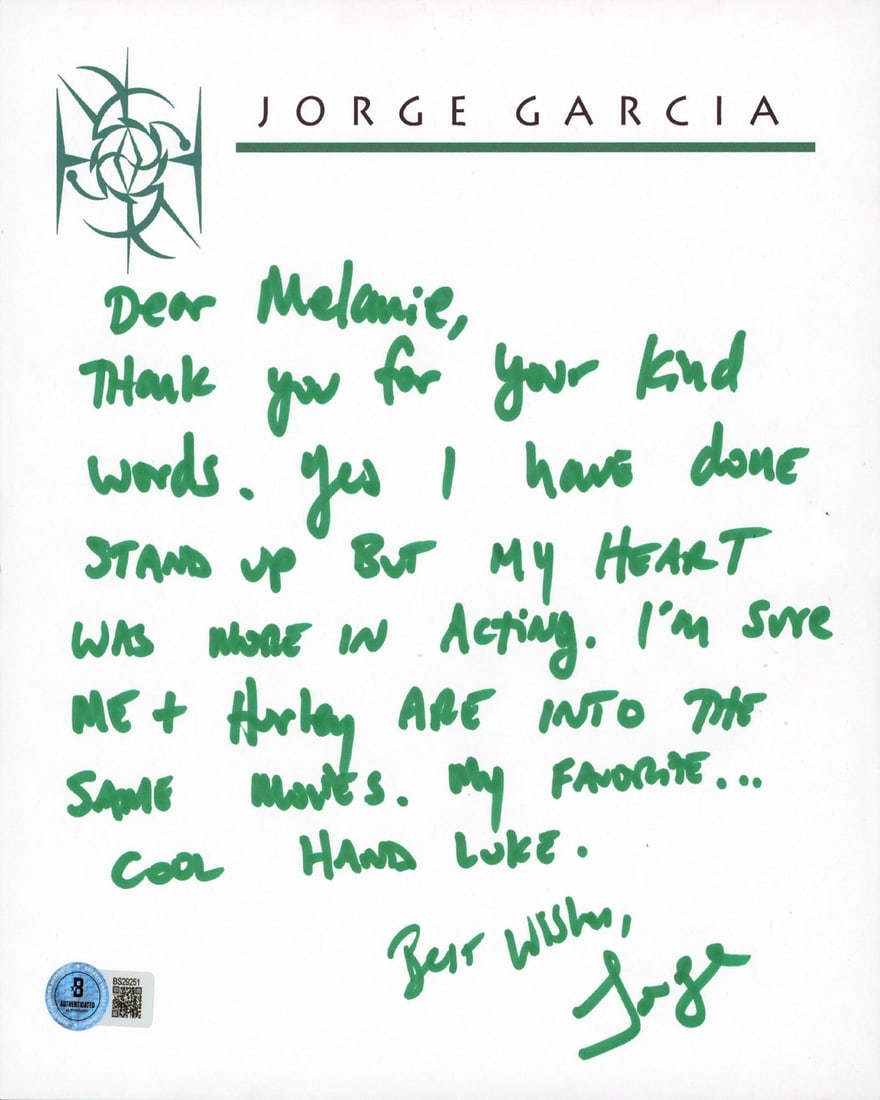 JORGE GARCIA
Dear Melanie,
THank you for your Kind
words. Yes I have done
STAND UP BUT MY HEART
WAS MORE IN Acting. I'm Sure
ME + Hurley ARE INTO THE
SAME MOVIES. My FAVORITE...
COOL HAND LUKE.
Best Wishes,
Jorge
B
AUTHENTICATED
BS29251